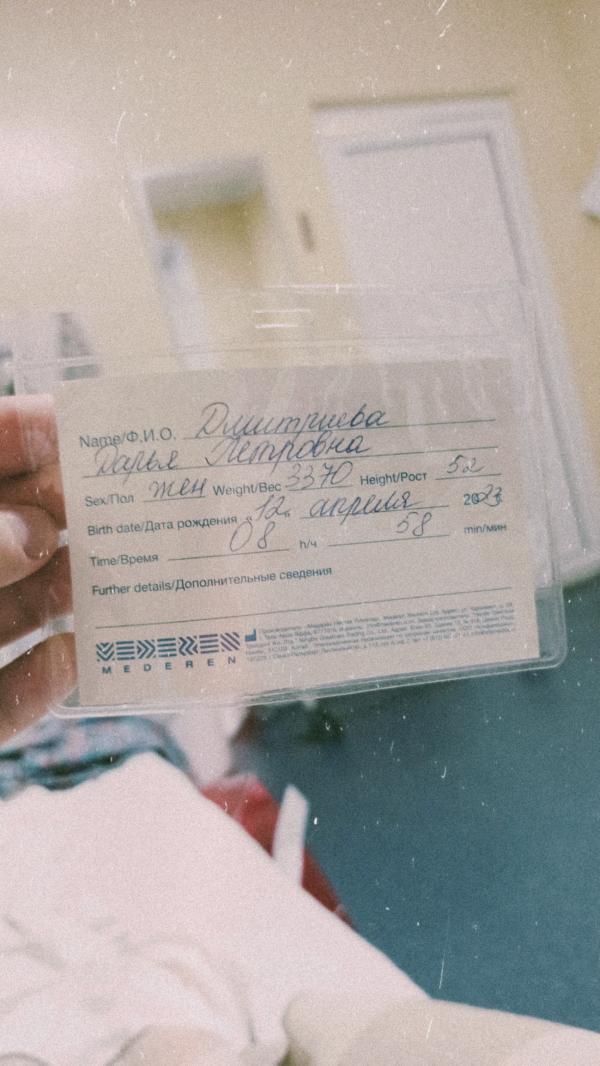 Name/Ф.И.О. Дмитриева
Дарья Петровна
Sex/Пол жен Weight/Вес 3370 Height/Рост 52
Birth date/Дата рождения «12» апреля 2023
Time/Время 08 h/ч 58 min/мин
Further details/Дополнительные сведения
MEDEREN